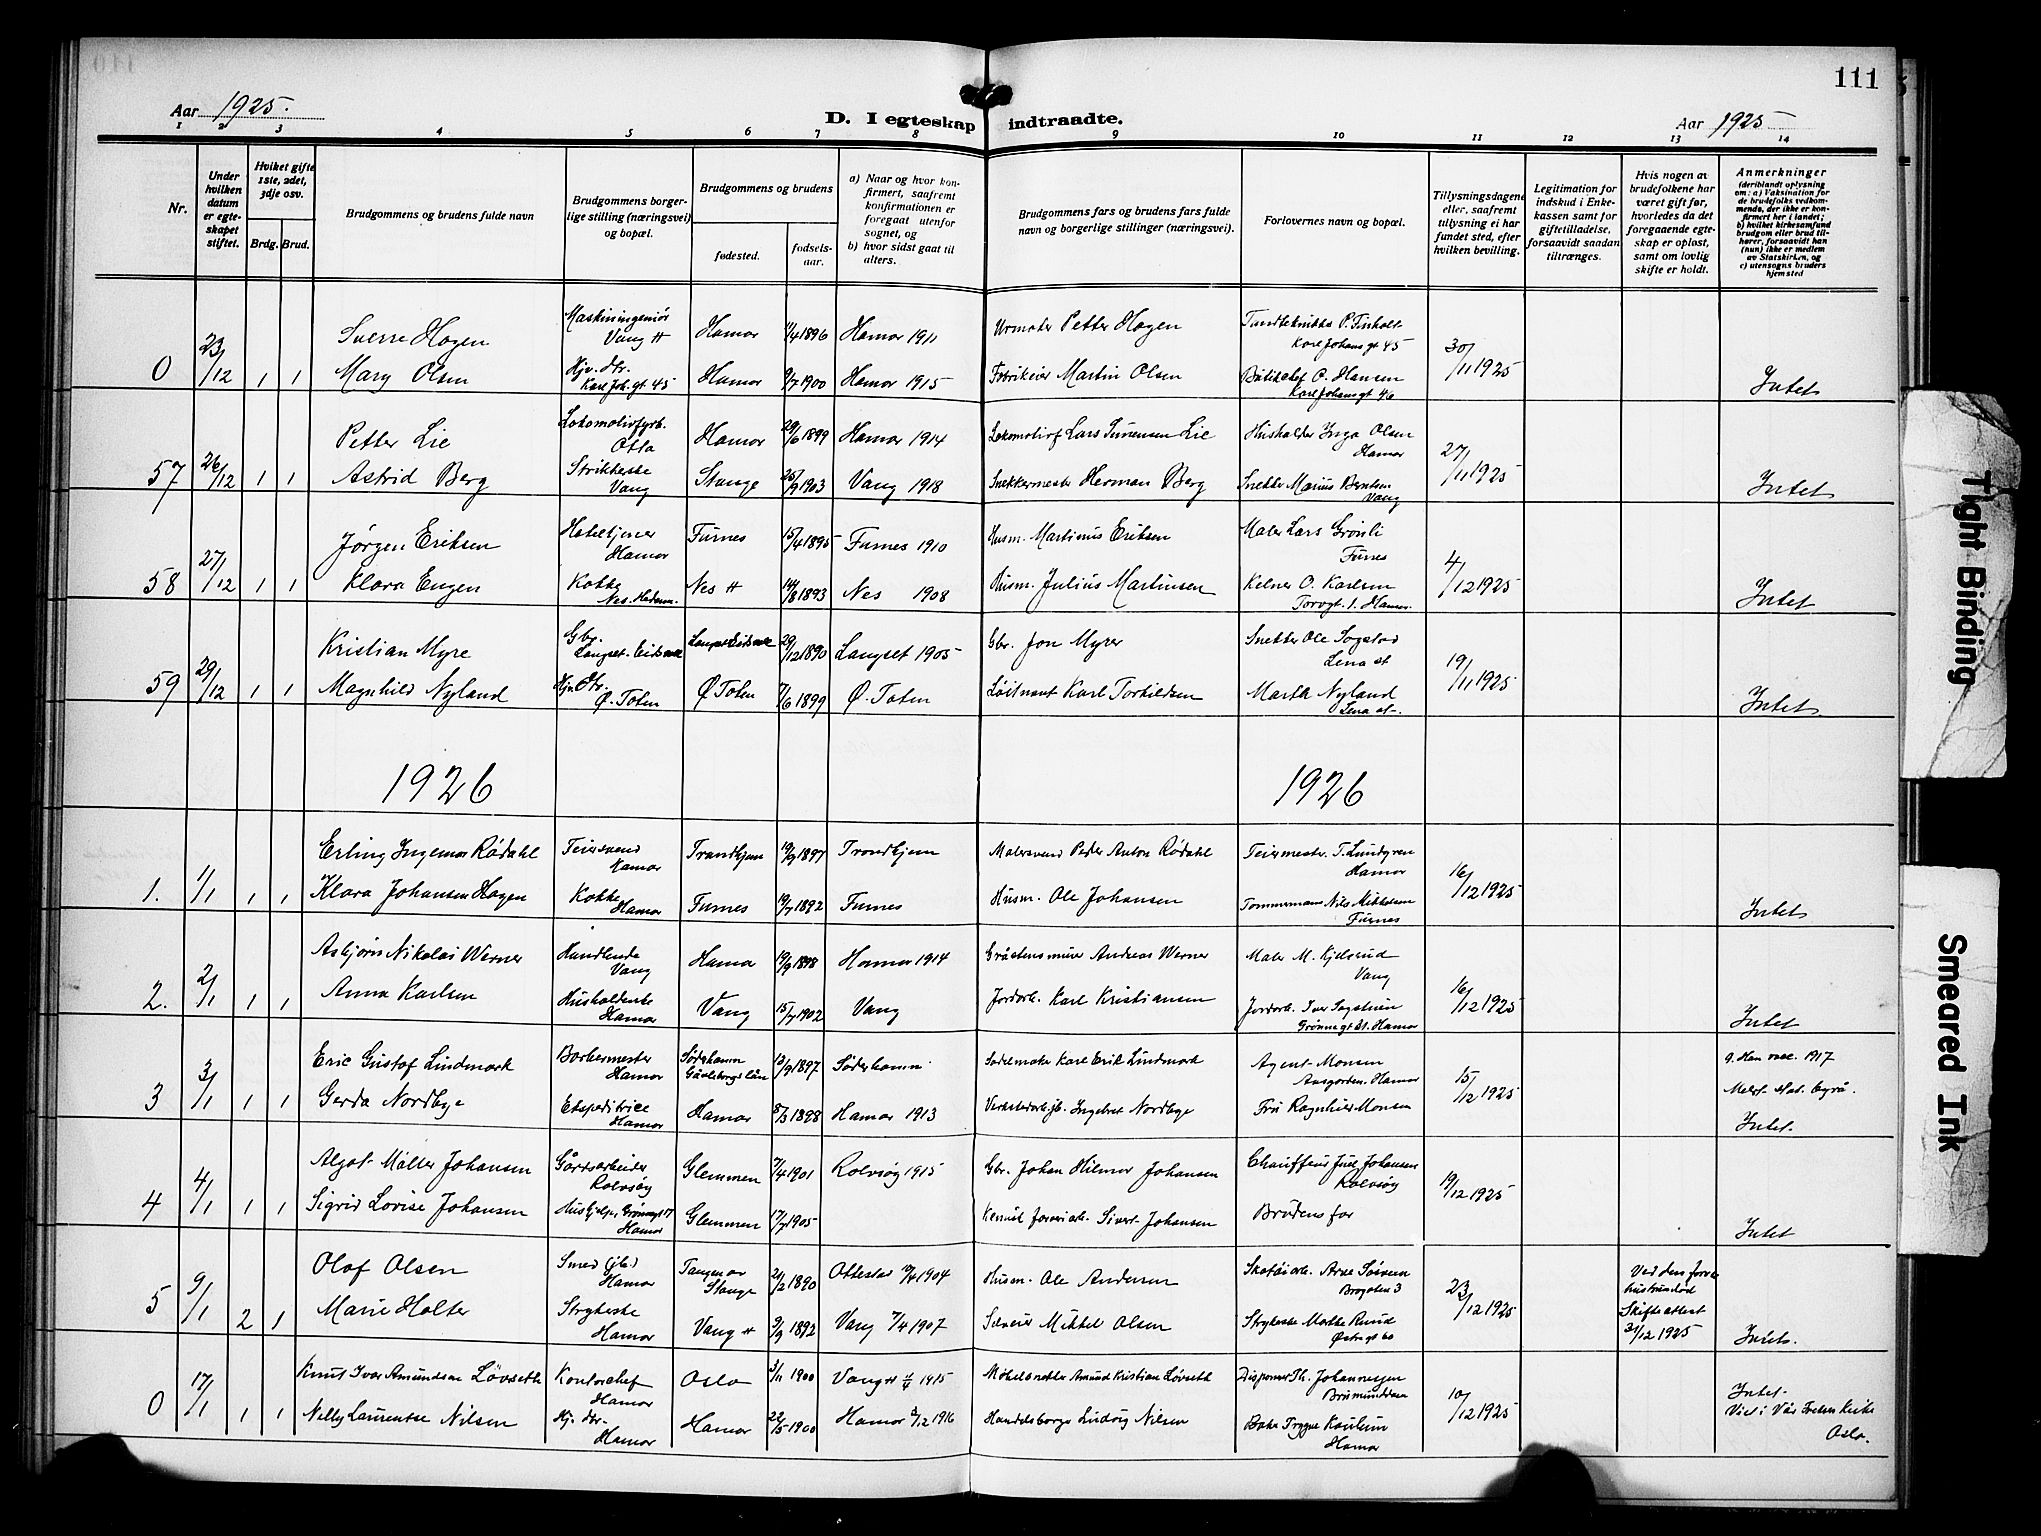 111
Aar 1925.
D. I egteskap indtraadte.
Aar 1925
1 2 3 4 5 6 7 8 9 10 11 12 13 14
Nr.
Under hvilken datum er egteskapet stiftet.
Hvilket gifte 1ste, 2det, 3dje osv.
Brdg. Brud.
Brudgommens og brudens fulde navn
Brudgommens borgerlige stilling (næringsvei) og bopæl.
Brudgommens og brudens
fødested.
fødselsaar.
a) Naar og hvor konfirmert, saafremt konfirmationen er foregaat utenfor sognet, og
b) hvor sidst gaat til alters.
Brudgommens fars og brudens fars fulde navn og borgerlige stillinger (næringsvei).
Forlovernes navn og bopæl.
Tillysningsdagene eller, saafremt tillysning ei har fundet sted, efter hvilken bevilling.
Legitimation for indskud i Enkekassen samt for giftetilladelse, forsaavidt saadan tiltrænges.
Hvis nogen av brudefolkene har været gift før, hvorledes da det foregaaende egteskap er opløst, samt om lovlig skifte er holdt.
Anmerkninger
(deriblandt oplysning om: a) Vaksination for de brudefolks vedkommende, der ikke er konfirmert her i landet; b) hvilket kirkesamfund brudgom eller brud tilhører, forsaavidt han (hun) ikke er medlem av Statskirken, og c) utensogns bruders hjemsted
0 23/12 1 1
Sverre Hagen Maskiningeniør Vang H Hamar 11/4 1896 Hamar 1911 Urmaker Petter Hagen Karl Johans gt 45 30/11 1925
Mary Olsen Hjv. dtr. Karl Joh. gt. 45 Hamar 9/7 1900 Hamar 1915 Fabrikeier Martin Olsen O. Hansen Karl Johans gt 46 Intet
57 26/12 1 1
Petter Lie Lokomotivfyrb. Otta Hamar 29/6 1899 Hamar 1914 Lokomotivf Lars Sørensen Lie Husholder Inga Olsen Hamar 27/11 1925
Astrid Berg Strikkerske Vang Stange 25/9 1903 Vang 1918 Snekkermester Herman Berg Snekker Marius Berntsen Vang Intet
58 27/12 1 1
Jørgen Eriksen Hoteltjener Hamar Furnes 15/4 1895 Furnes 1910 Husm. Martinus Eriksen Maler Lars Grønli Furnes 4/12 1925
Klara Engen Kokke Nes. Hedem. Nes H 14/8 1893 Nes 1908 Husm. Julius Martinsen Kelner O. Karlsen Torvgt. 1. Hamar. Intet
59 29/12 1 1
Kristian Myre Gbr. Langset. Eidsvoll Langset Eidsvoll 29/12 1890 Langset 1905 Gbr. Jon Myrer Snekker Ole Sogstad Lena st 19/11 1925
Magnhild Nyland Hjv. Dtr. Ø. Toten Ø. Toten 7/6 1899 Ø. Toten Løitnant Karl Torkildsen Marth Nyland Lena st. Intet
1926 1926
1. 1/1 1 1
Erling Ingemar Rødahl Feiersvend Hamar Trondhjem 19/9 1897 Trondhjem Malersvend Peder Anton Rødahl Feiermester. T. Lundgren Hamar 16/12 1925
Klara Johansen Hagen Kokke Hamar Furnes 19/7 1892 Furnes Husm. Ole Johansen Tømmermann Nils Mikkelsen Furnes Intet
2. 2/1 1 1
Asbjørn Nikolai Werner Handlende Vang Hamar 19/9 1898 Hamar 1914 Gråstensmurer Andreas Werner Maler M. Kjelsrud Vang 16/12 1925
Anna Karlsen Husholderske Hamar Vang 15/7 1902 Vang Jordarb. Karl Kristiansen Jordarb. Iver Grønnegt 21. Hamar Intet
3 3/1 1 1
Eric Gustaf Lindmark Barbermester Hamar Söderhamn Gävleborgs län 13/9 1897 Söderhamn Sadelmaker Karl Erik Lindmark Agent Monsen Hamar 15/12 1925 9. Han vacc. 1917
Gerda Nordbye Ekspeditrice Hamar Hamar 8/3 1898 Hamar 1913 Verkstedarb. Ingebret Nordbye Fru Ragnhild Monsen Intet.
4 4/1 1 1
Algot Møller Johansen Gårdsarbeider Rolvsøy Glemmen 7/4 1901 Rolvsøy 1915 Gbr. Johan Hilmar Johansen Chauffeur Juel Johansen Rolvsøy 19/12 1925
Sigrid Lovise Johansen Hushjelp, Grønnegt 17 Hamar Glemmen 17/7 1905 Sivert Johansen Brudens far Intet
5 9/1 2 1
Olof Olsen Smed Hamar Tangen av Stange 21/2 1890 Ottestad 1904 Husm. Ole Andersen Skotøiarb. Arne Brogaten 3 23/12 1925 Ved den forr. hustrus død Skifteattest 31/12 1925
Marie Holter Strykerske Hamar Vang H 9/9 1892 Vang 7/4 1907 Selveier Mikkel Olsen Strykerske Marthe Ruud Østregt 60 Intet.
0 17/1 1 1
Knut Ivar Amundsen Løvseth Kontorchef Hamar Oslo 3/11 1900 Vang H 11/4 1915 Møbelsnekker Amund Kristian Løvseth Disponer Th. Johannesen Brumunddal 10/12 1925 Intet
Nelly Laurentse Nilsen Hj. dtr. Hamar Hamar 22/5 1900 Hamar 3/12 1916 Handelsborger Ludvig Nilsen Baker Trygve Hamar Viet i Vår Frelsers Kirke Oslo.
Tight Binding
Smeared Ink